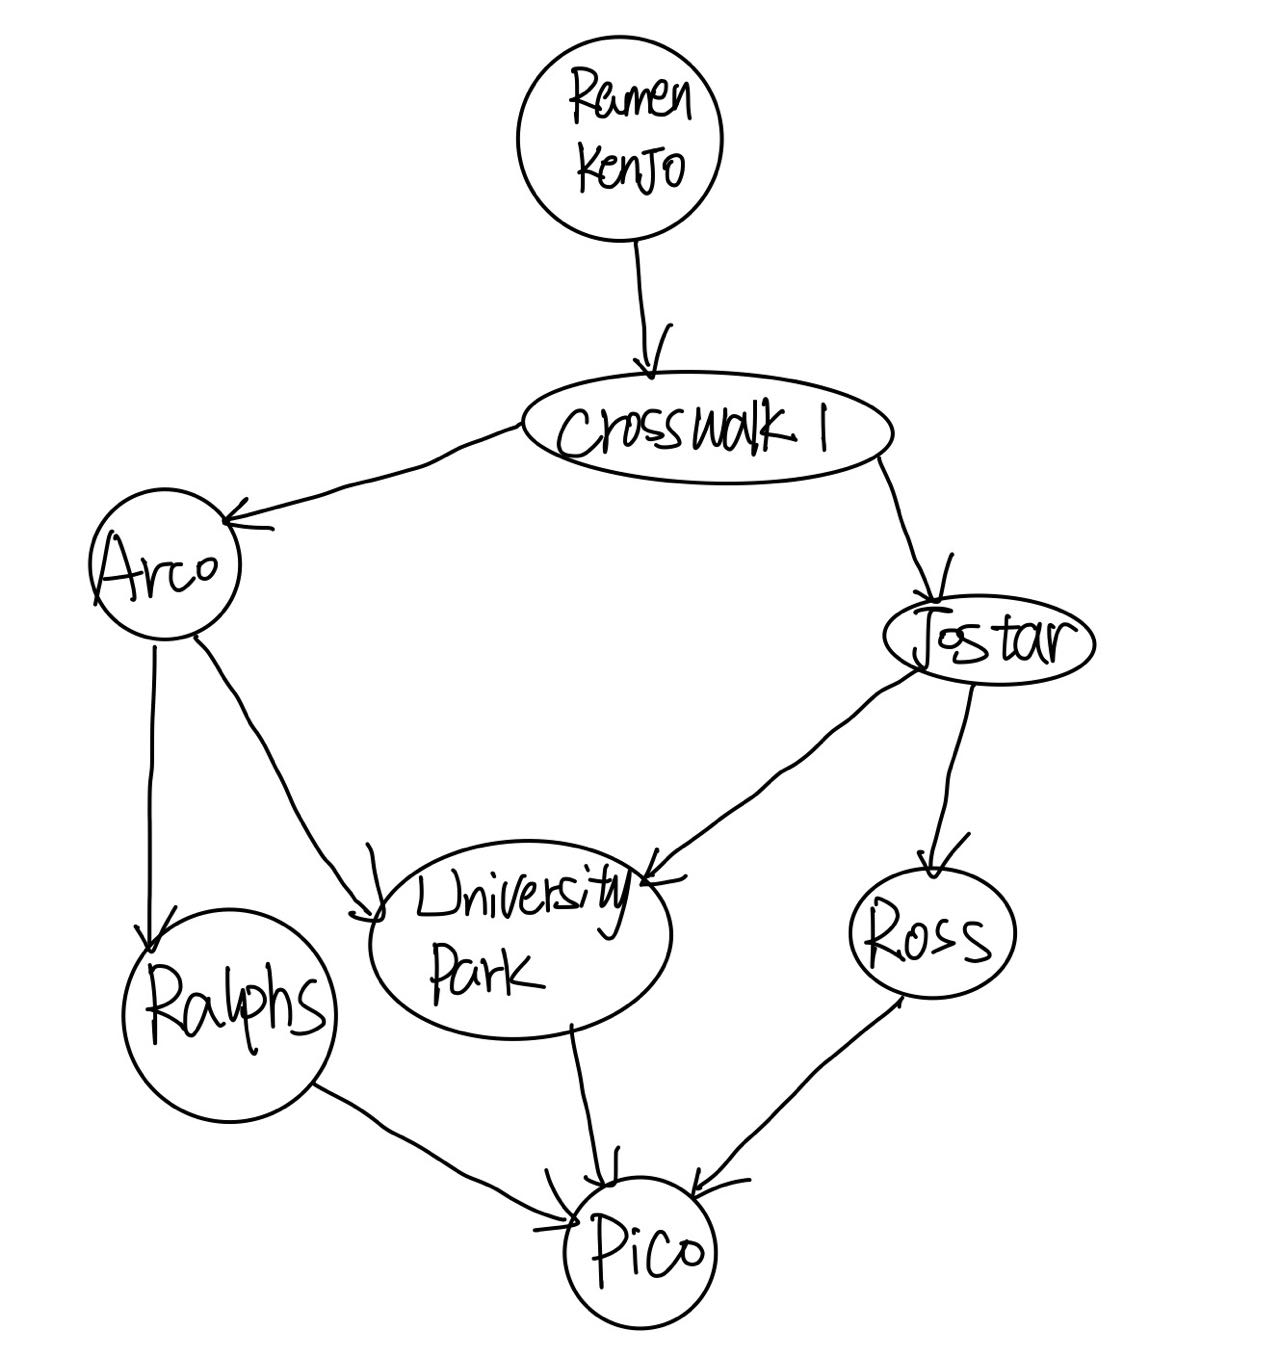 Ramen
KenJo
Crosswalk 1
Arco
Jostar
University
Park
Ross
Ralphs
Pico